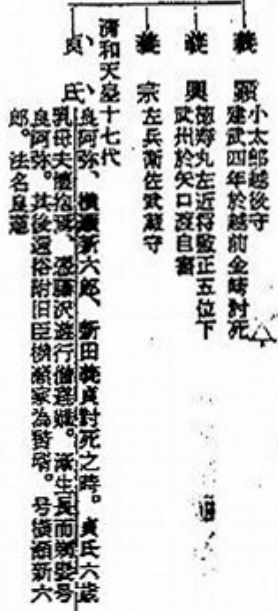 義顕
小太郎越後守
建武四年於越前金崎討死
義興
徳寿丸左近将監正五位下
武州於矢口渡自害
義宗
左兵衛佐武蔵守
清和天皇十七代
貞氏
良阿弥、横瀬新六郎、新田義貞討死之時。貞氏六歳
乳母夫懐抱焉、憑藤沢遊行僧。漸生長而剃髪号
良阿弥。其後還俗附旧臣横瀬家為聟。号横瀬新六
郎。法名良意